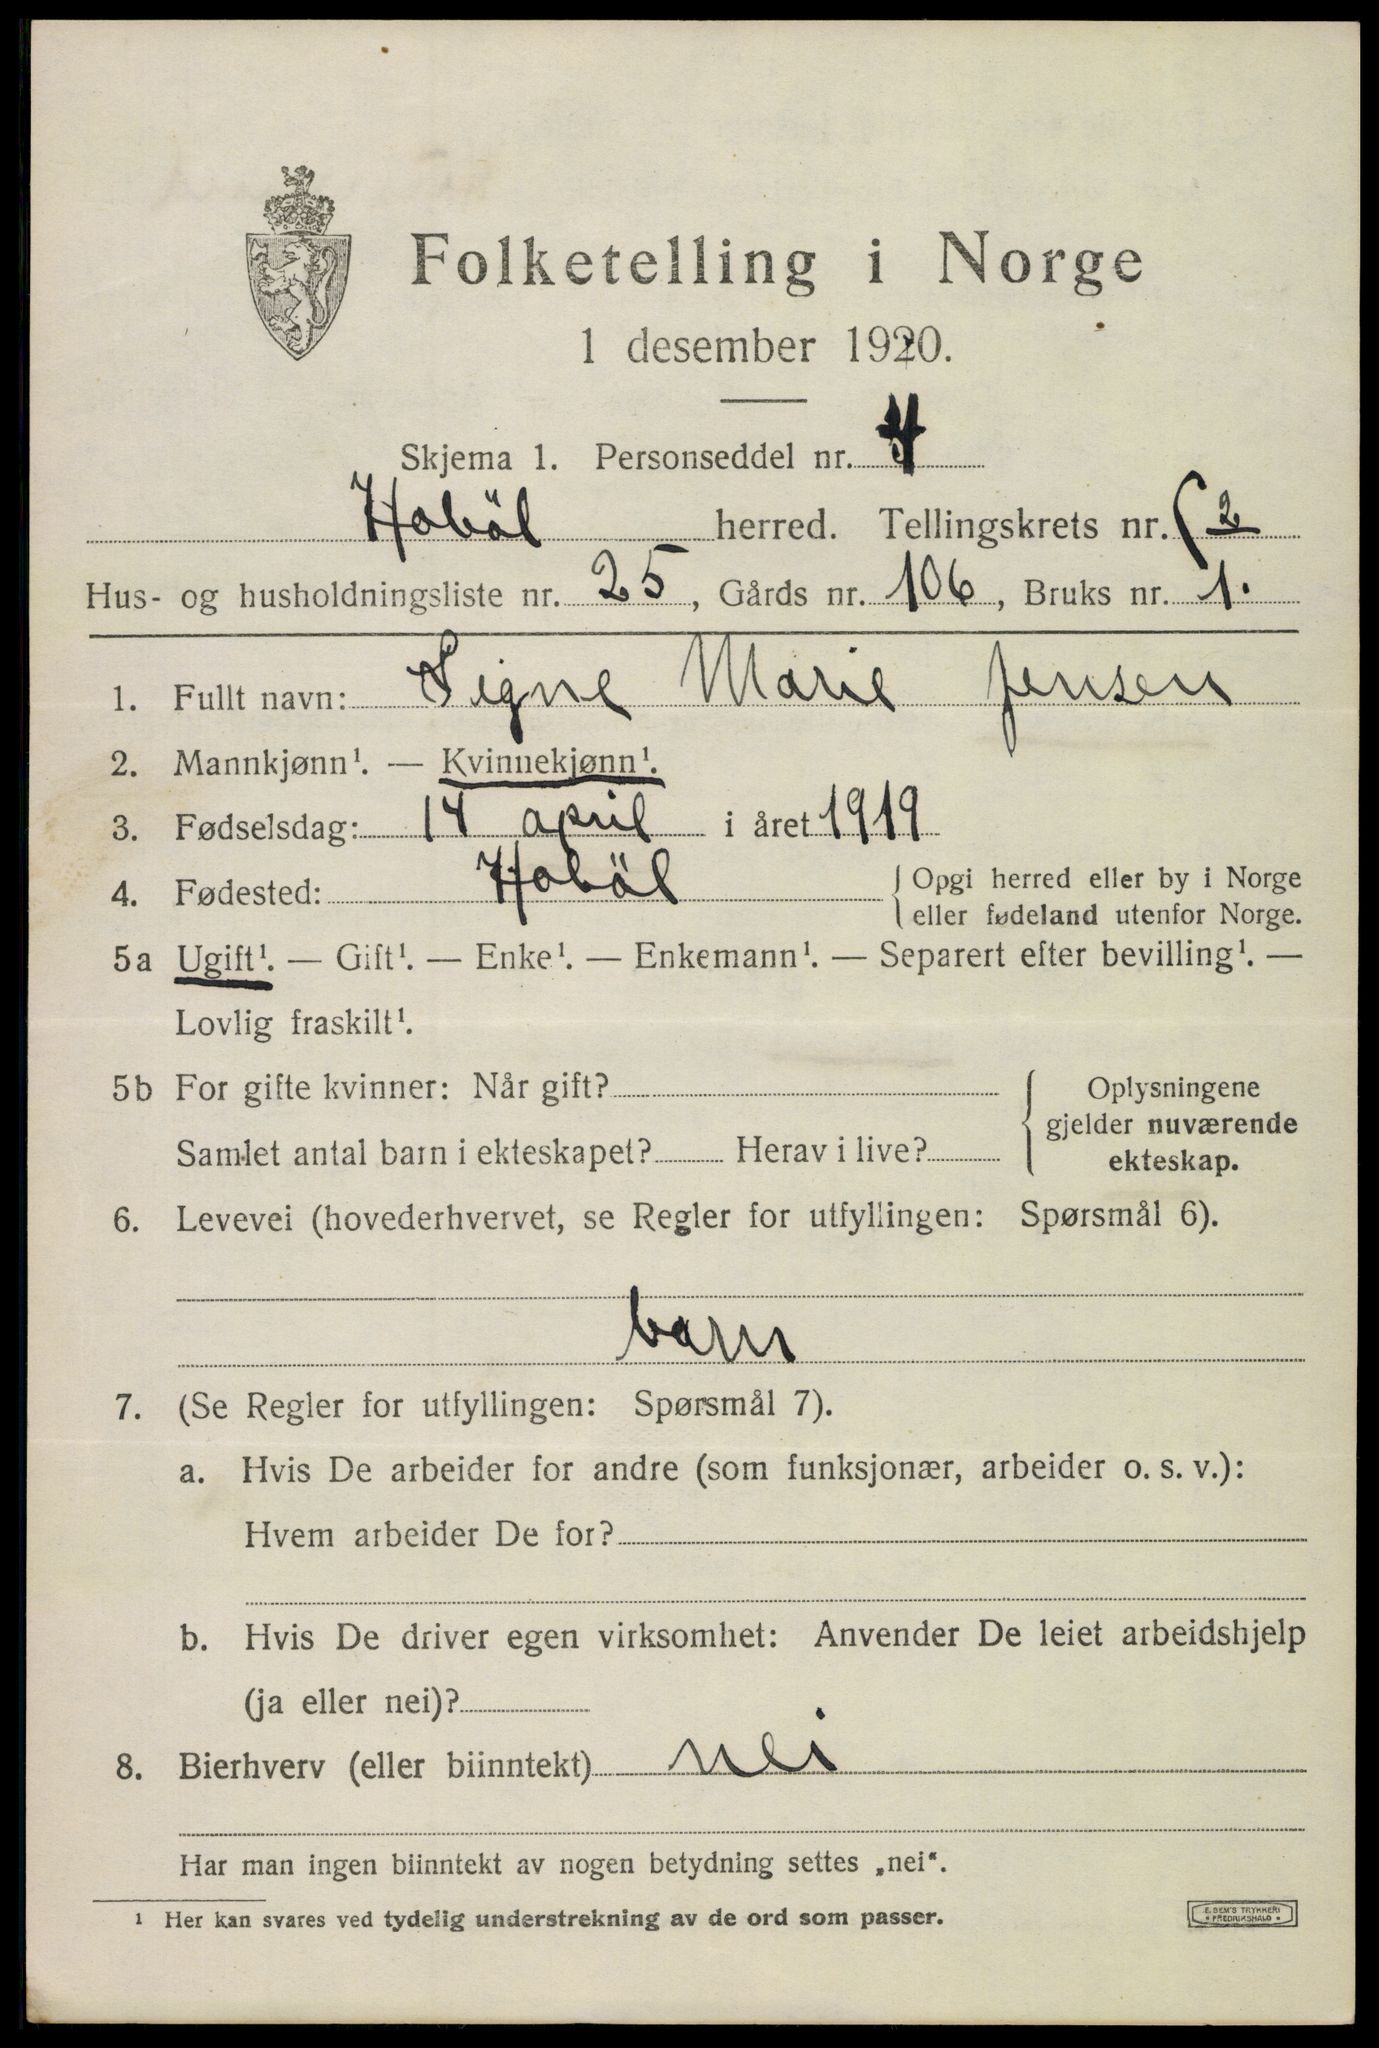 Folketelling i Norge
1 desember 1920.
Skjema 1. Personseddel nr. 4
Hobøl herred. Tellingskrets nr. 2
Hus- og husholdningsliste nr. 25, Gårds nr. 106, Bruks nr. 1.
1. Fullt navn: Signe Marie Jensen
2. Mannkjønn¹. — Kvinnekjønn¹.
3. Fødselsdag: 14 april i året 1919
4. Fødested: Hoböl { Opgi herred eller by i Norge
eller fødeland utenfor Norge.
5a Ugift¹. — Gift¹. — Enke¹. — Enkemann¹. — Separert efter bevilling¹. —
Lovlig fraskilt¹.
5b For gifte kvinner: Når gift? { Oplysningene
gjelder nuværende
Samlet antal barn i ekteskapet? Herav i live? ekteskap.
6. Levevei (hovederhvervet, se Regler for utfyllingen: Spørsmål 6).
barn
7. (Se Regler for utfyllingen: Spørsmål 7).
a. Hvis De arbeider for andre (som funksjonær, arbeider o. s. v.):
Hvem arbeider De for?
b. Hvis De driver egen virksomhet: Anvender De leiet arbeidshjelp
(ja eller nei)?
8. Bierhverv (eller biinntekt) nei
Har man ingen biinntekt av nogen betydning settes „nei“.
¹ Her kan svares ved tydelig understrekning av de ord som passer.
E. SEM'S TRYKKERI
• FREDRIKSHALD •